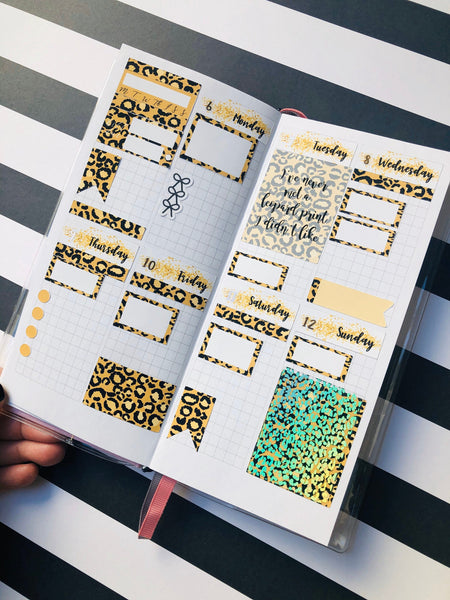 M T W T F S S
6
Monday
Thursday
10
Friday
Tuesday
8
Wednesday
I've never
met a
leopard print
I didn't like
Saturday
12
Sunday